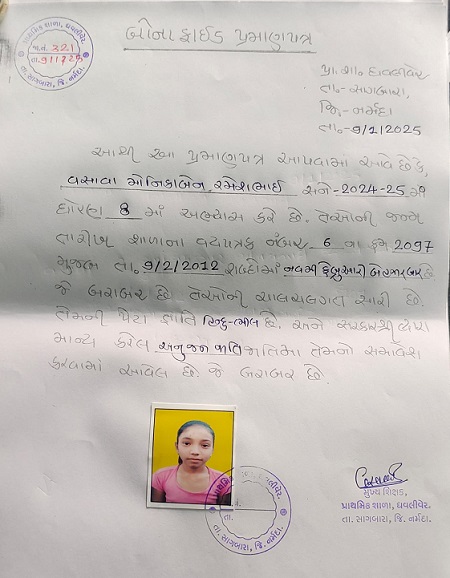 બોનાફાઈડ પ્રમાણપત્ર
પ્રાથમિક શાળા, ધવલીવેર.
જા.નં. 321
તા. 9/1/25
તા. સાગબારા, જિ. નર્મદા.
પ્રા.શા. ધવલીવેર
તા.- સાગબારા,
જિ.- નર્મદા
તા.- 9/1/2025
આથી આ પ્રમાણપત્ર આપવામાં આવે છે કે,
વસાવા મોનિકાબેન રમેશભાઈ સને-2024-25 માં
ધોરણ 8 માં અભ્યાસ કરે છે. તેઓની જન્મ
તારીખ શાળાના વયપત્રક નંબર 6 ના ક્રમ 2097
મુજબ તા. 9/2/2012 શબ્દોમાં નવમી ફેબ્રુઆરી બે હજાર બાર છે
જે બરાબર છે. તેઓની ચાલચલગત સારી છે.
તેમની પેટા જ્ઞાતિ હિન્દુ-ભીલ છે. અને સરકારશ્રી દ્વારા
માન્ય કરેલ અનુજન જાતિ જાતિમાં તેમનો સમાવેશ
કરવામાં આવેલ છે. જે બરાબર છે.
તા.
તા. સાગબારા, જિ. નર્મદા.
મુખ્ય શિક્ષક,
પ્રાથમિક શાળા, ધવલીવેર.
તા. સાગબારા, જિ. નર્મદા.